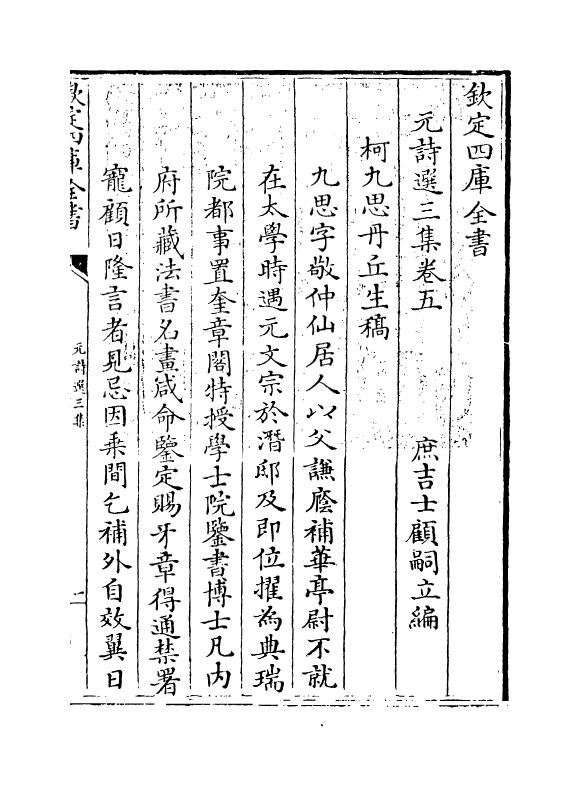 欽定四庫全書
元詩選三集卷五　　　庶吉士顧嗣立編
柯九思丹丘生稿
九思字敬仲仙居人以父謙廕補華亭尉不就
在太學時遇元文宗於潛邸及即位擢為典瑞
院都事置奎章閣特授學士院鑒書博士凡内
府所藏法書名畫咸命鑒定賜牙章得通禁署
寵顧日隆言者見忌因乗間乞補外自效翼日
欽定四庫全書
元詩選三集